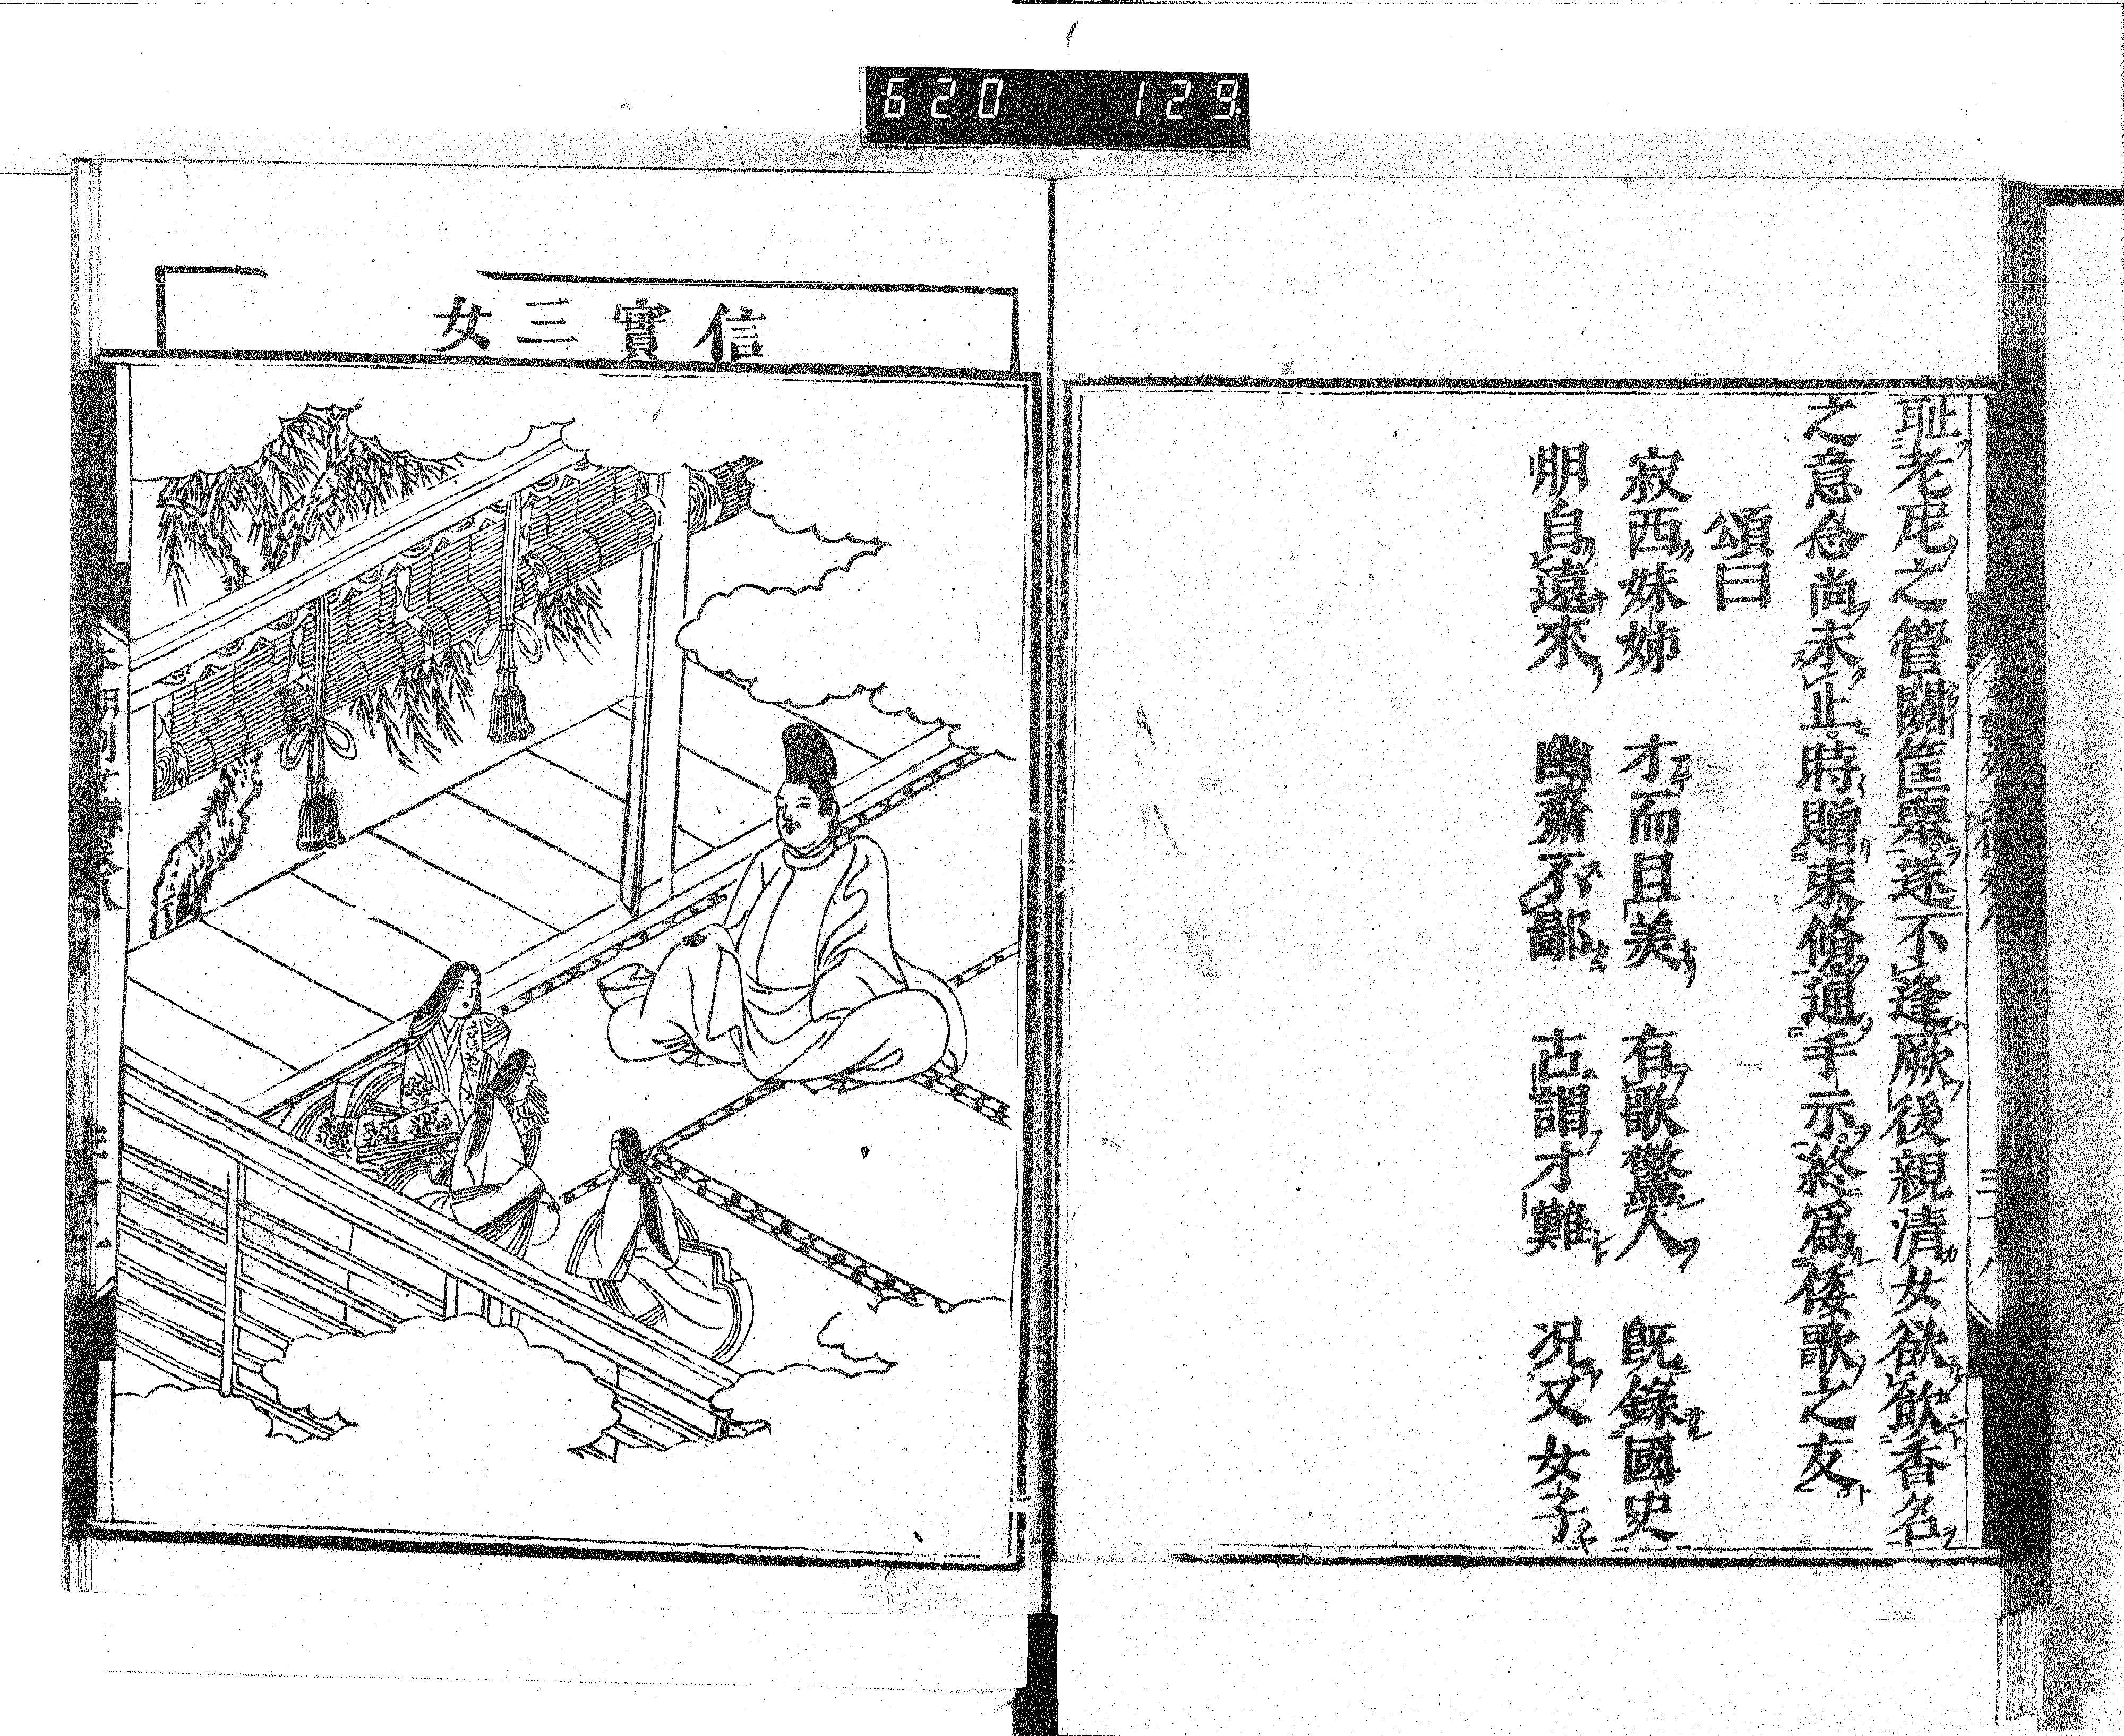 620 129
耻老耄之管闚筐舉遂不逢厥後親清女欲歆香名
之意念尚未止時贈束脩通手示終爲倭歌之友
頌曰
寂西妹姊 才而且美 有歌驚人 既錄國史
朋自遠來 幽齋不鄙 古謂才難 况又女子
信實三女